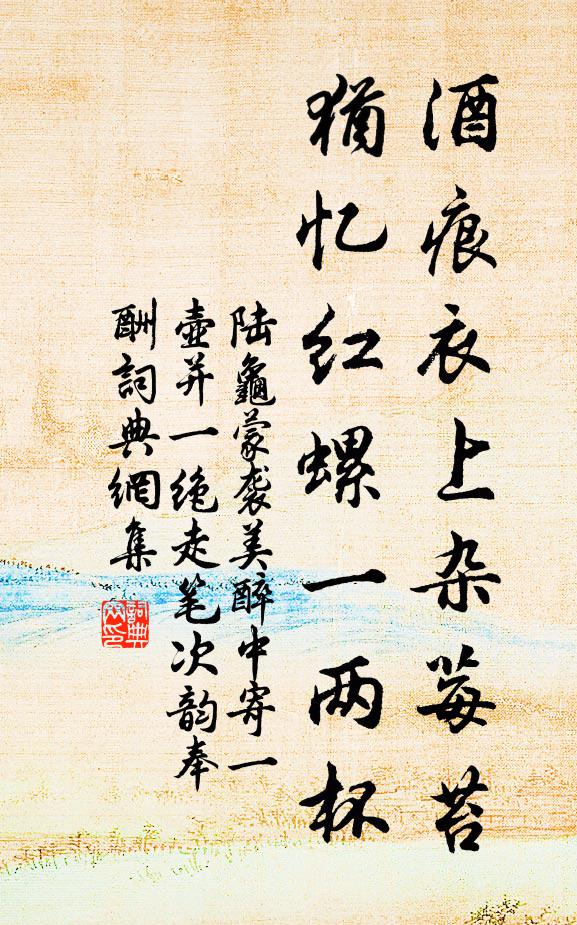 酒痕衣上杂莓苔
犹忆红螺一两杯
陆龜蒙袭美醉中寄一
壶并一绝走笔次韵奉
酬詞典網集
詞典